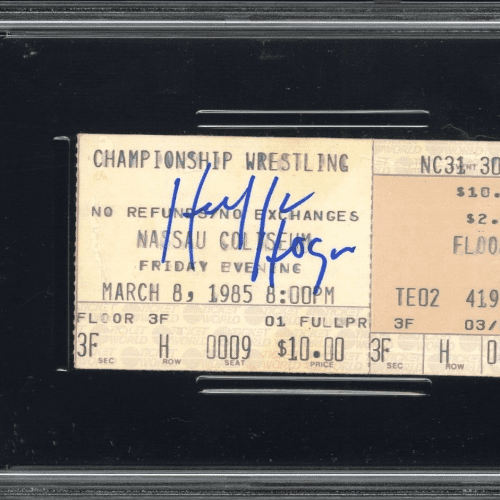 CHAMPIONSHIP WRESTLING
NO REFUNDS/NO EXCHANGES
NASSAU COLISEUM
FRIDAY EVENING
MARCH 8, 1985 8:00PM
Hulk Hogan
FLOOR 3F 01 FULLPR
3F H 0009 $10.00
SEC ROW SEAT PRICE
NC31 30
$10.
$2.
FLOO
TE02 419
3F 03/
3F H 0
SEC ROW